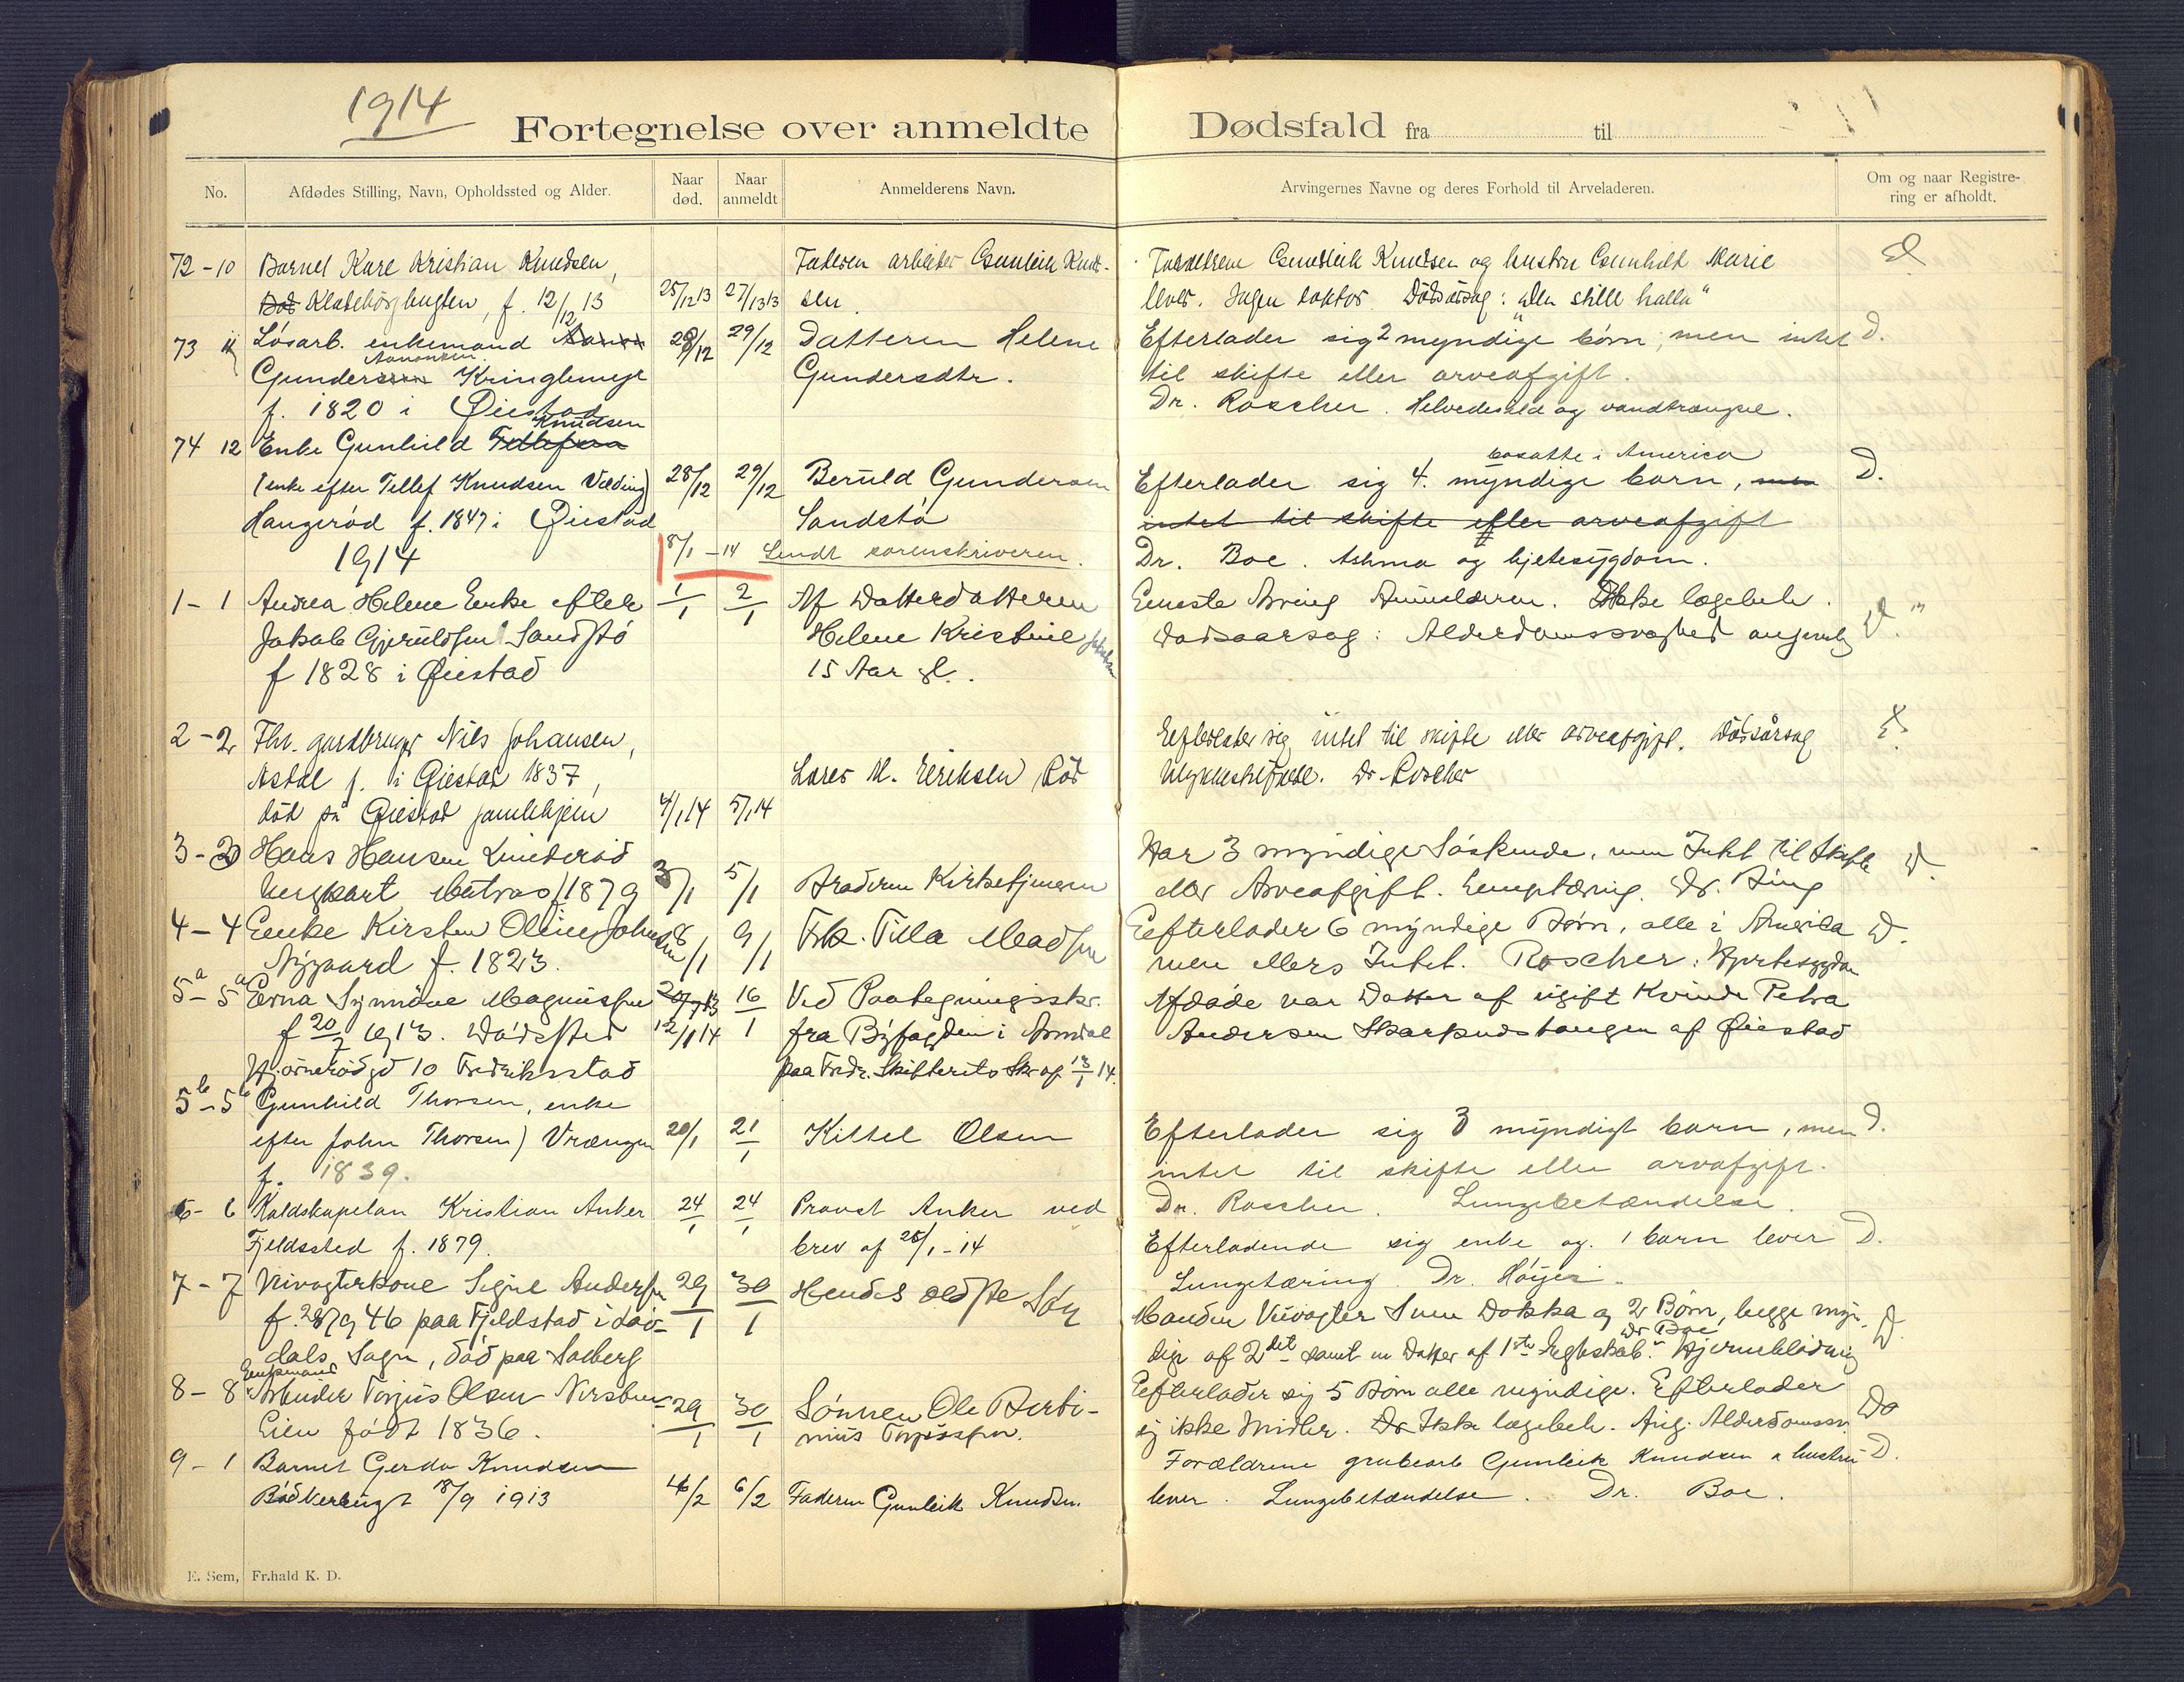 1914
Fortegnelse over anmeldte Dødsfald fra til
No.
Afdødes Stilling, Navn, Opholdssted og Alder.
Naar død.
Naar anmeldt
Anmelderens Navn.
Arvingernes Navne og deres Forhold til Arveladeren.
Om og naar Registrering er afholdt.
72-10 Barnet Kare Kristian Knudsen,
f. 12/12 13
25/12 13 27/12 13
Faderen arbeider Gunleik Knud-
sen
Forældrene Gunleik Knudsen og hustru Gunhild Marie
lever. Ingen doktor. Dødsårsag: "den stille halla"
73 11 Løsarb. enkemand
Gunder Aanonsen Kringlemyr
f. 1820 i Øiestad
28/12 29/12
Datteren Helene
Gundersdtr.
Efterlader sig 2 myndige børn, men intet D.
til skifte eller arveafgift.
Dr. Roscher. Helvedesild og vandtrængsel.
74 12 Enke Gunhild Knudsen
(enke efter Tellef Knudsen
Haugerød f. 1847 i Øiestad
28/12 29/12
Beruld Gundersen
Sandstø
Efterlader sig 4 myndige barn, bosatte i America D.
intet til skifte eller arveafgift
Dr. Boe. Asthma og hjetesygdom.
8/1 -14 Sendt sorenskriveren.
1914
1-1 Andrea Helene Enke efter
Jakob Gjeruldsen Sandstø
f 1828 i Øiestad
1/1 2/1
Af Datterdatteren
Helene Kristine
15 Aar gl.
Eneste Arving Anmelderen. Ikke lægebeh.
Dødsaarsag: Alderdomssvaghed angivelig D.
2-2 Fhv. gardbruger Nils Johansen,
Asdal f. i Øiestad 1837,
död på Øiestad gamlehjem
4/1 14 5/1 14
Lars M. Eriksen Röd
Efterlader sig intet til skifte eller arveafgift. Dödsårsag
Dr. Roscher
3-3 Hans Hansen
Matros f 1879
3/1 5/1
Broderen Kirketjeneren
Har 3 myndige Søskende, men Intet til Skifte D.
eller Arveafgift. Dr. Ring
4-4 Enke Kirsten Oline Johnsen
Nygaard f. 1823.
8/1 9/1
Frk. Tilla Madsen
Eefterlader 6 myndige Børn, alle i Amerika D.
men ellers Intet. Roscher: Hjertesygdom
5a-5a Erna Synnöve Magnussen
f 20/7 1913. Dødssted
10 Fredriksstad
12/1 14 16/1
Ved Paategningsskr.
fra Byfogden i Arendal
paa Fredr. Skifterets Skr af 13/1 14.
Afdøde var Datter af ugift Kvinde Petra
Andersen Skarpnestangen af Øiestad
5b-5b Gunhild Thorsen, enke
efter John Thorsen) Vrængen
f. 1839.
20/1 21/1
Kittel Olsen
Efterlader sig 3 myndigt barn, men D.
intet til skifte eller arvafgift.
Dr. Roscher. Lungebetændelse.
6-6 Kaldskapelan Kristian Anker
Fjeldssted f. 1879.
24/1 24/1
Provst Anker ved
brev af 25/1 -14
Efterladende sig enke og 1 barn lever D.
Lungetæring. Dr. Höyer.
7-7 Veivogterkone Signe Andersen
f. 28/9 46 paa Fjeldstad i Løv-
dals Sogn, död paa Solberg
29/1 30/1
Hendes ældste Søn
Manden Veivogter Sven Dokka og 2 Børn, begge myn-
dige af 2det samt en Datter af 1ste Egteskab. Dr. Boe Hjerneblødning D.
8-8 Enkemand Arbeider Torjus Olsen
Eien født 1836.
29/1 30/1
Sønnen Ole Berti-
nius
Eefterlader sig 5 Börn alle myndige. Efterlader
sig ikke Midler. Ikke lægebeh. Ang. Alderdomssv. Do
9-1 Barnet Gerda Knudsen
18/9 1913
4/2 6/2
Faderen Gunleik Knudsen.
Forældrene grubearb Gunleik Knudsen & hustru D.
lever. Lungebetændelse. Dr. Boe.
E. Sem, Fr.hald K. D.